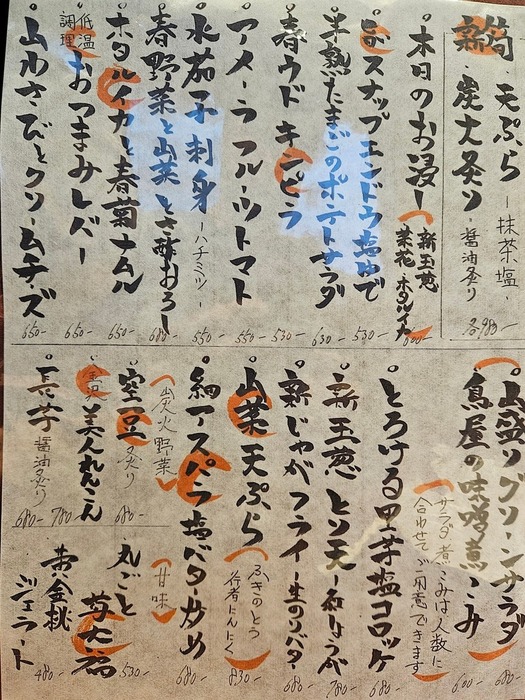 新筍
天ぷら ー抹茶塩ー
炭火炙り ー醤油炙りー
各980-
本日のお浸し(新玉葱 菜花 ホタルイカ) 600-
スナップエンドウ塩ゆで 530-
半熟たまごのポテトサラダ 630-
春ウド キンピラ 530-
アメーラフルーツトマト 550-
水茄子刺身 ーハチミツー 550-
春野菜と山菜 とさ酢おろし 680-
ホタルイカと春菊ナムル 650-
低温調理 おつまみレバー 650-
山わさびとクリームチーズ 650-
山盛りグリーンサラダ 680-
鳥屋の味噌煮こみ 600-
(サラダ煮こみは人数に合わせてご用意できます)
とろける里芋塩コロッケ 680-
新玉葱 とり天ー紅しょうがー 780-
新じゃがフライー生のりバター 680-
山菜天ぷら(ふきのとう 行者にんにく) 830-
細アスパラ塩バター炒め 680-
(炭火野菜)
空豆 炙り 680-
美人れんこん 780-
長芋 醤油炙り 680-
(甘味)
丸ごと 苺大福 530-
黄金桃 ジェラート 480-